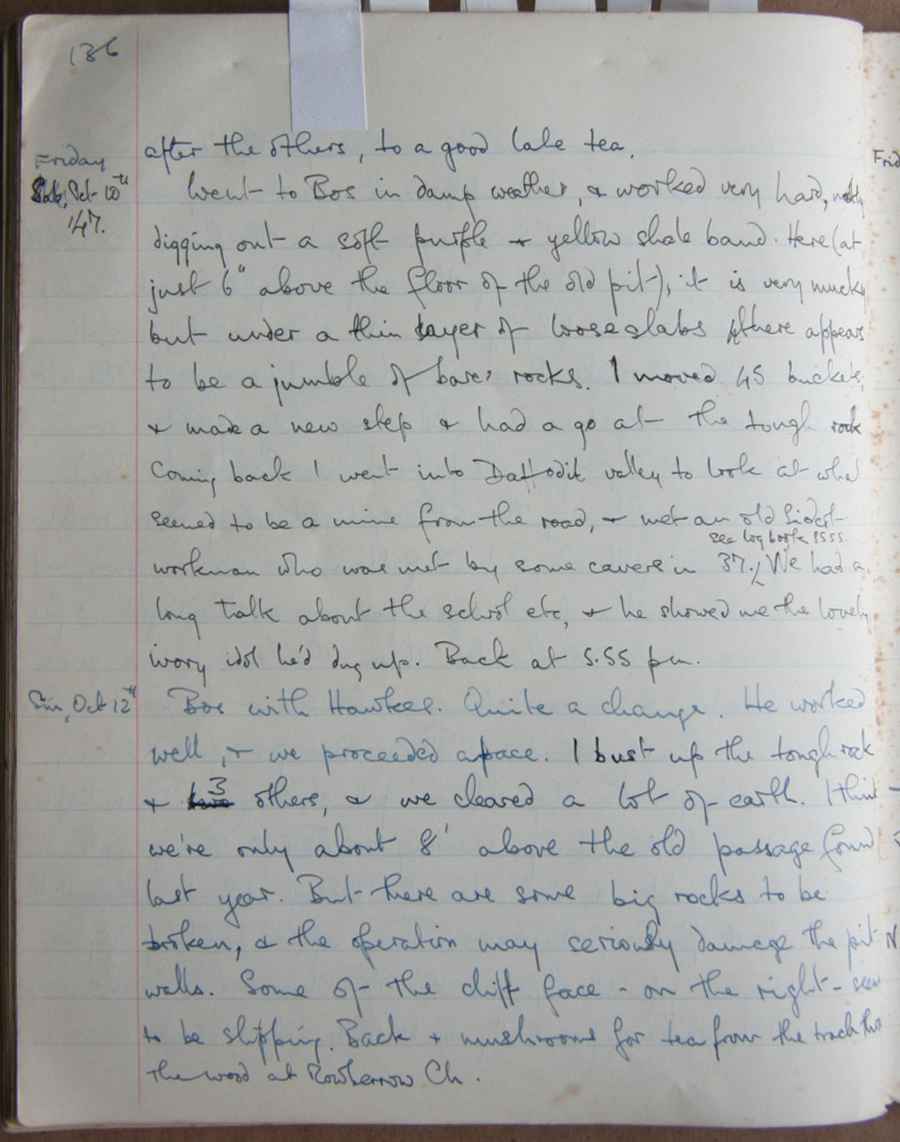 136
after the others, to a good late tea.
Friday
Oct 10th
'47.
Went to Bos in damp weather, & worked very hard,
digging out a soft purple & yellow shale band. Here (at
just 6" above the floor of the old pit), it is very mucky
but under a thin layer of loose slabs there appears
to be a jumble of bare rocks. I moved 45 buckets,
& made a new step & had a go at the tough rock
Coming back I went into Daffodil valley to look at what
seemed to be a mine from the road, & met an old Sidcot
see log book 1555
workman who was met by some cavers in 37. We had a
long talk about the school etc, & he showed me the lovely
ivory idol he'd dug up. Back at 5.55 pm.
Sun, Oct 12th
Bos with Hawkes. Quite a change. He worked
well, & we proceeded apace. I bust up the tough rock
& 3 others, & we cleared a lot of earth. I think
we're only about 8' above the old passage found
last year. But there are some big rocks to be
broken, & the operation may seriously damage the pit
walls. Some of the cliff face - on the right - seem
to be slipping. Back & mushrooms for tea from the track thro
the wood at Rowberrow Ch.
Frid
N